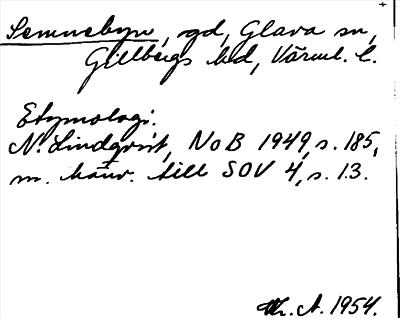 Semnebyn, gd, Glava sn,
Gillbergs hd, Värml. l.
Etymologi:
N. Lindqvist, NoB 1949, s. 185,
m. hänv. till SOV 4, s. 13.
A. 1954.